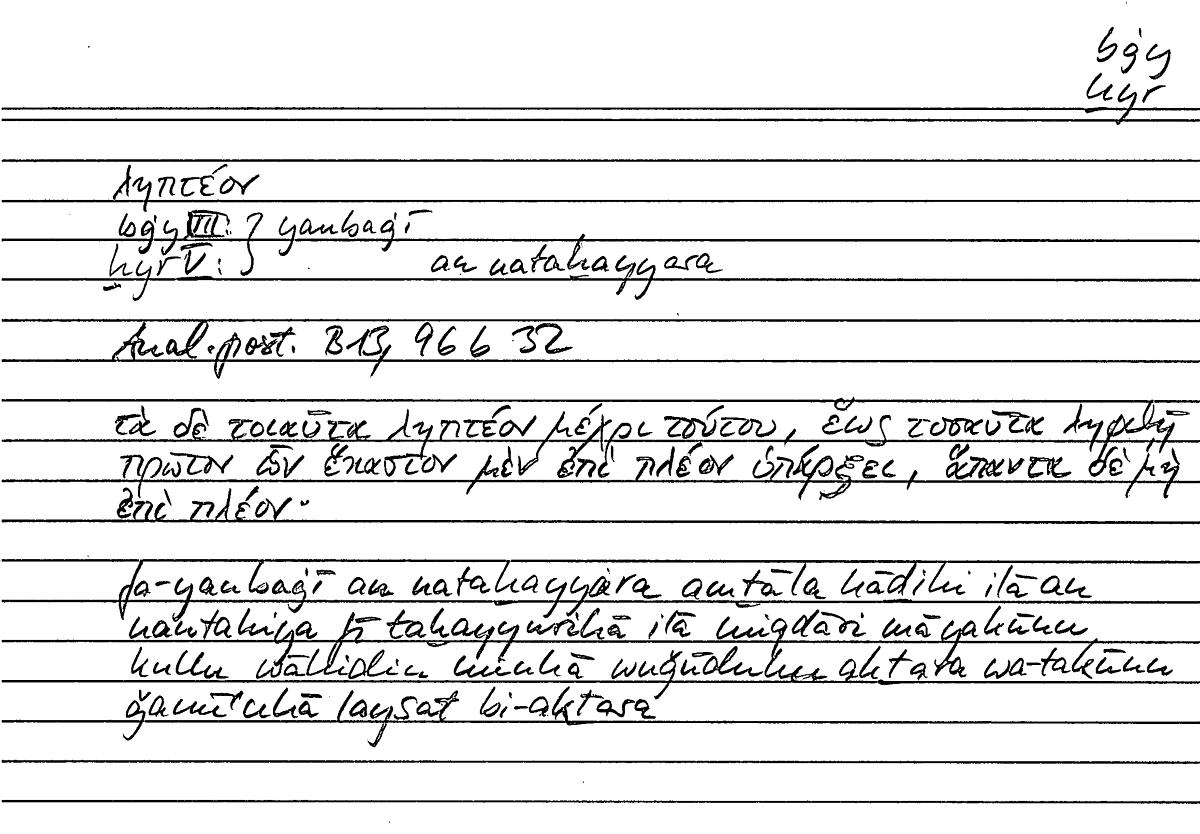 bġy
ḫyr
ληπτέον
bġy VII: } yanbaġī
ḫyr V: } an nataḫayyara
Anal. post. B 13, 96 b 32
τὰ δὲ τοιαῦτα ληπτέον μέχρι τούτου, ἕως τοσαῦτα ληφθῇ
πρῶτον ὧν ἕκαστον μὲν ἐπὶ πλέον ὑπάρξει, ἅπαντα δὲ μὴ
ἐπὶ πλέον·
fa-yanbaġī an nataḫayyara amṯāla hāḏihi ilā an
nantahiya fī taḫayyurihā ilā miqdāri mā yakūnu
kullu wāḥidin minhā wuǧūduhu akṯara wa-takūnu
ǧamīʿuhā laysat bi-akṯara